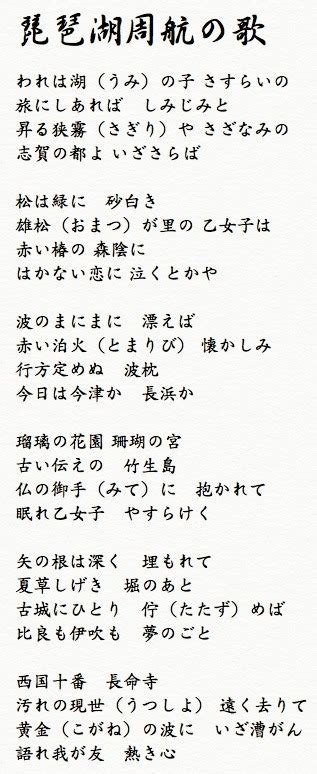 琵琶湖周航の歌
われは湖（うみ）の子 さすらいの
旅にしあれば　しみじみと
昇る狭霧（さぎり）や さざなみの
志賀の都よ いざさらば
松は緑に　砂白き
雄松（おまつ）が里の 乙女子は
赤い椿の 森陰に
はかない恋に 泣くとかや
波のまにまに　漂えば
赤い泊火（とまりび） 懐かしみ
行方定めぬ　波枕
今日は今津か　長浜か
瑠璃の花園 珊瑚の宮
古い伝えの　竹生島
仏の御手（みて）に　抱かれて
眠れ乙女子　やすらけく
矢の根は深く　埋もれて
夏草しげき　堀のあと
古城にひとり　佇（たたず）めば
比良も伊吹も　夢のごと
西国十番　長命寺
汚れの現世（うつしよ） 遠く去りて
黄金（こがね）の波に　いざ漕がん
語れ我が友　熱き心